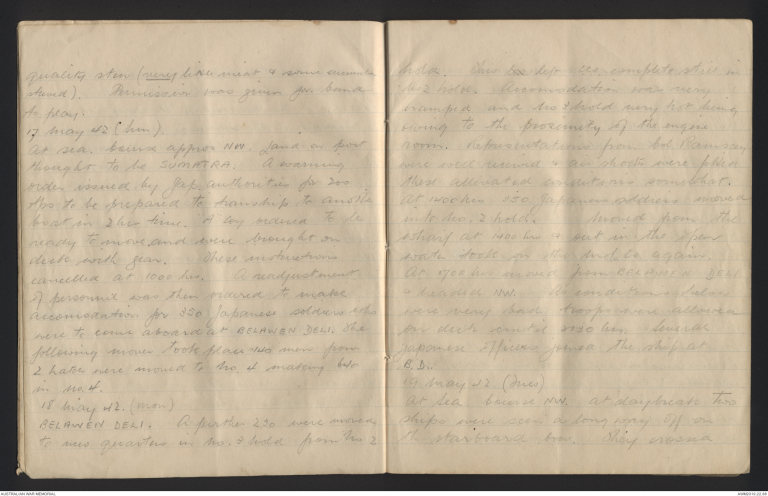 quality stew (very little meat & some cucumber
stewed). Permission was given for band
to play.
17 May 42 (Sun).
At sea. Course approx NW. Land on port
thought to be SUMATRA. A warning
order issued by Jap authorities for 200
to be prepared to tranship to another
boat in 2 hrs time. A Coy ordered to be
ready to move and were brought on
deck with gear. These instructions
cancelled at 1000 hrs. A readjustment
of personnel was then ordered to make
accomodation for 350 Japanese soldiers who
were to come aboard at BELAWEN DELI. The
following moves took place 140 men from
2 hatch were moved to No. 4 making
in No. 4.
18 May 42. (Mon)
BELAWEN DELI. A further 230 were moved
to new quarters in No. 3 hold from No 2
hold. This left complete still in
No 2 hold. Accomodation was very
cramped and No 3 hold very hot being
owing to the proximity of the engine
room. Representations from Col Ramsay
were well received & air shoots were fitted
these alleviated conditions somewhat.
At 1400 hrs 350 Japanese soldiers moved
into No. 2 hold. Moved from the
wharf at 1400 hrs & out in the open
water took on the
At 1700 hrs moved from BELAWEN DELI
& headed NW. As conditions below
were very bad, troops were allowed
on deck until 2130 hrs. Several
Japanese Officers joined the ship at
B.D..
19 May 42. (Tues)
At Sea. Course NW. at daybreak two
ships were seen a long way off on
the starboard bow. They crossed
AUSTRALIAN WAR MEMORIAL